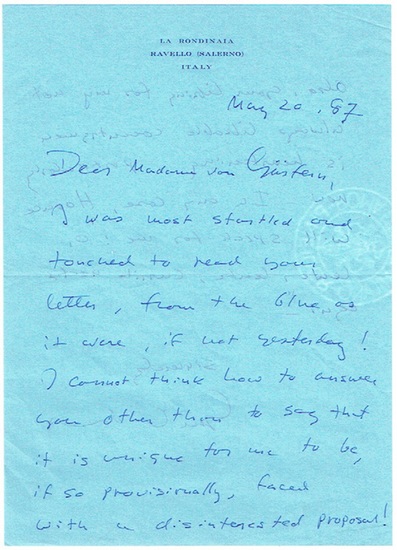 LA RONDINAIA
RAVELLO (SALERNO)
ITALY
May 20, '87
Dear Madame von
I was most startled and
touched to read your
letter, from the blue as
it were, if not yesterday!
I cannot think how to answer
you other than to say that
it is unique for me to be,
if so provisionally, faced
with a disinterested proposal!